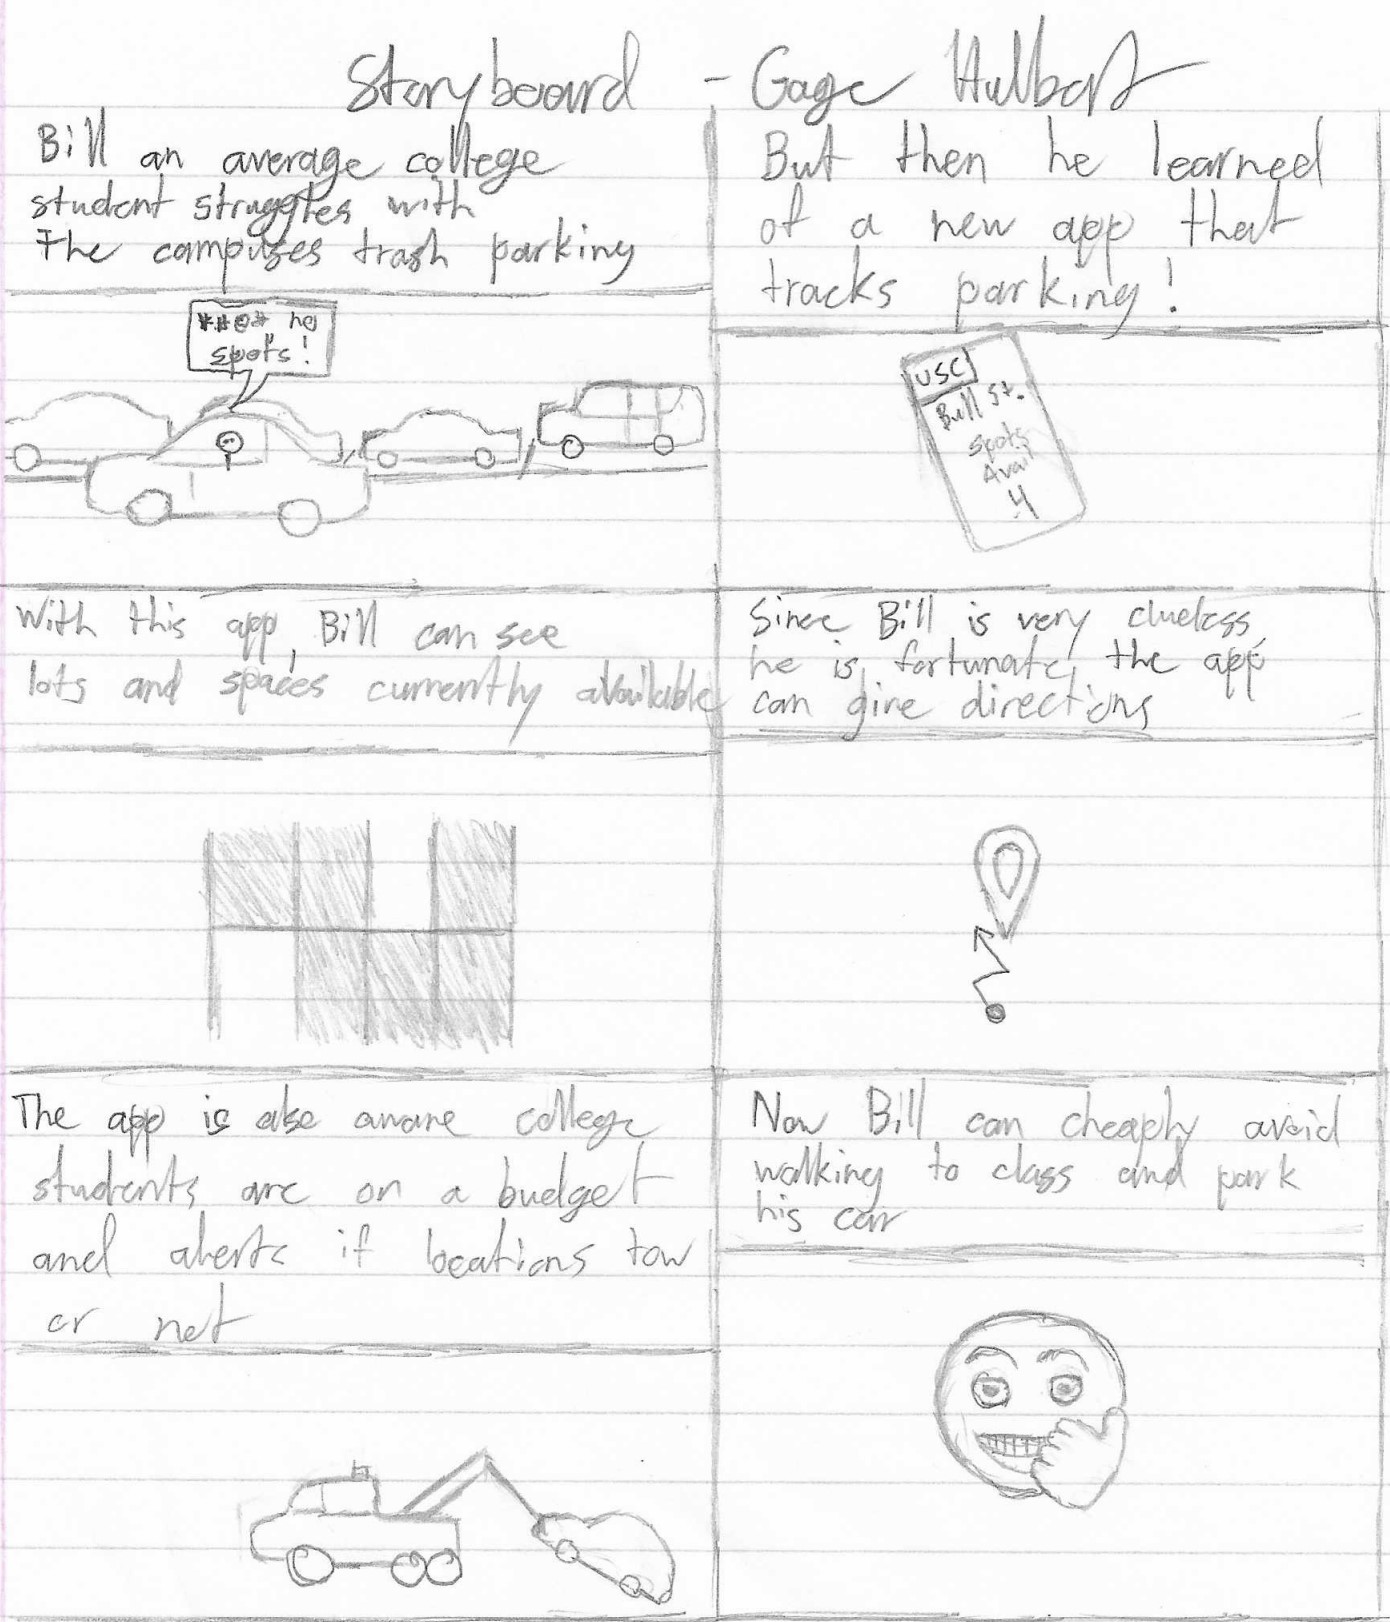 Storyboard - Gage Hulbert
Bill an average college
student struggles with
The campuses trash parking
*#@* no
spots!
But then he learned
of a new app that
tracks parking!
USC
Bull St.
Spots
Avail
4
With this app, Bill can see
lots and spaces currently available
Since Bill is very clueless,
he is fortunate, the app
can give directions
The app is also aware college
students are on a budget
and alerts if locations tow
or not
Now Bill can cheaply avoid
walking to class and park
his car